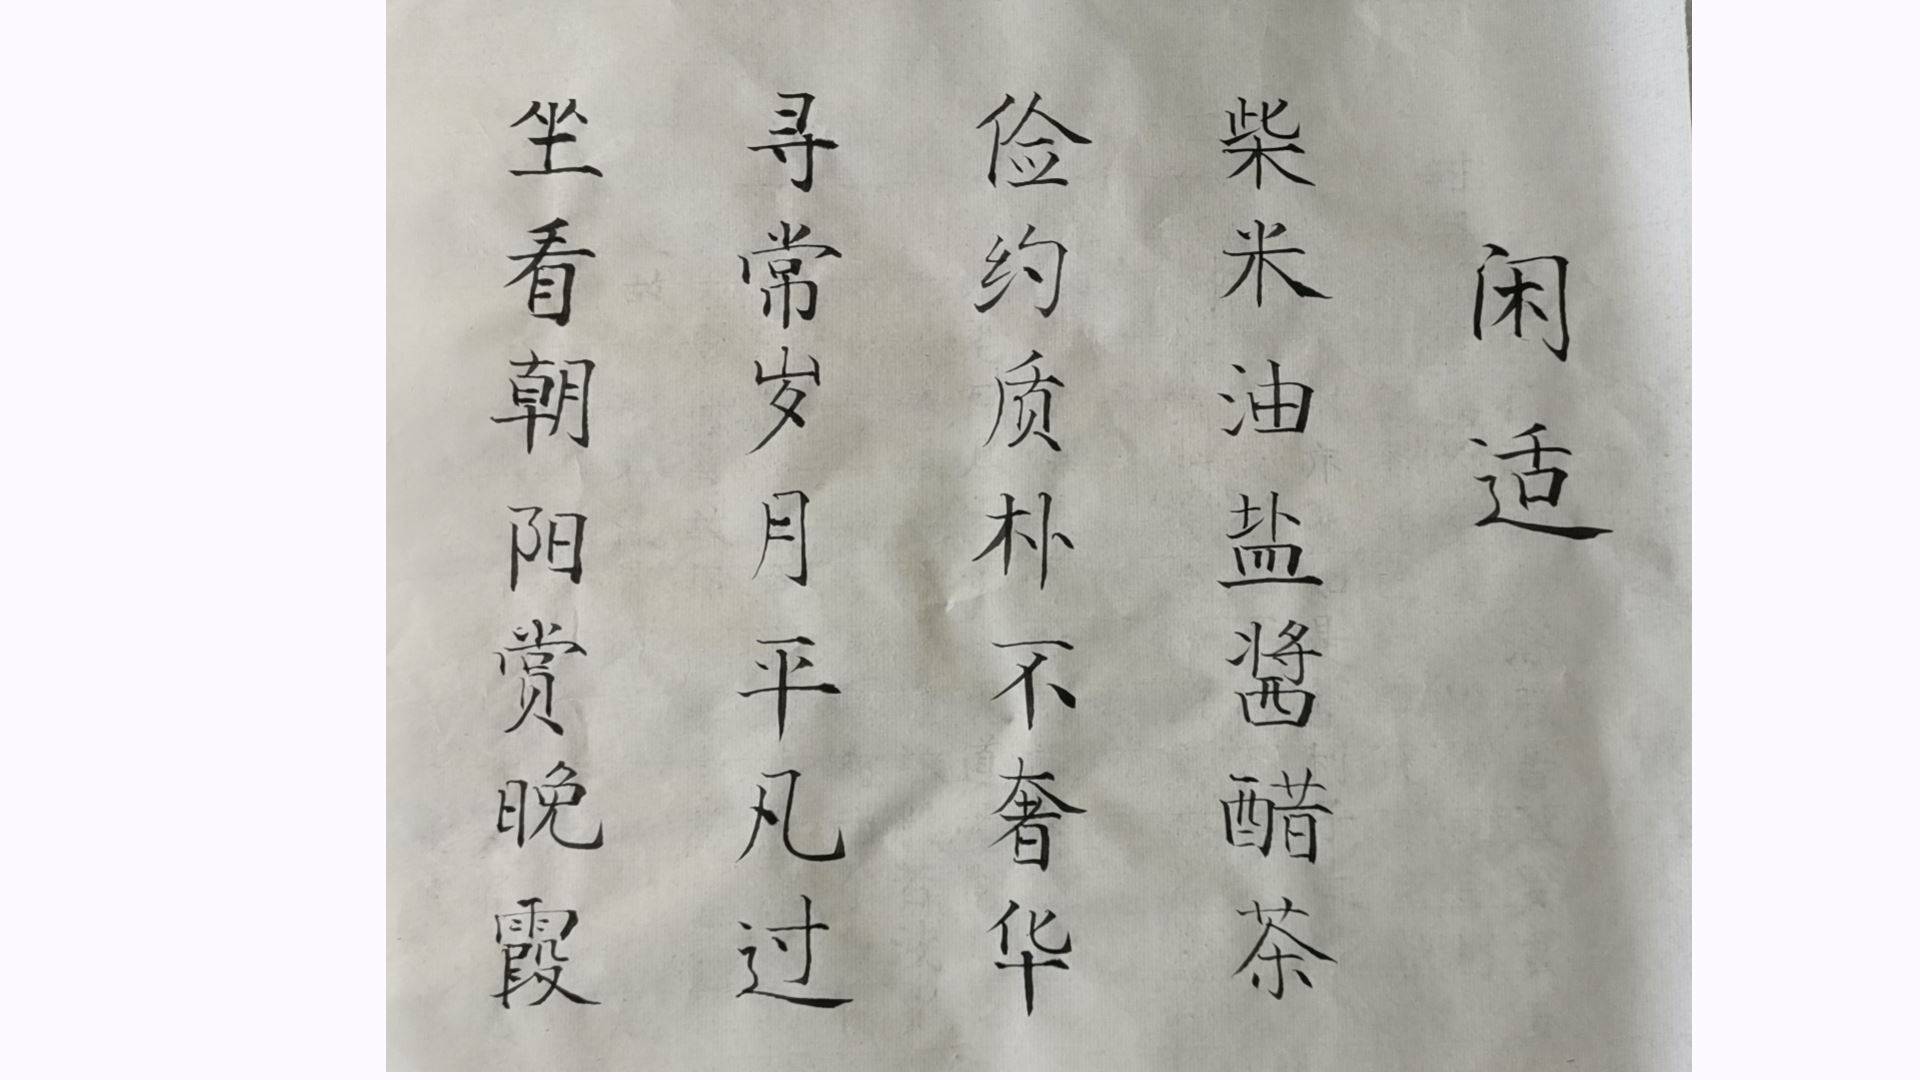 闲适
柴米油盐醬醋茶
俭约质朴不奢华
寻常岁月平凡过
坐看朝阳赏晚霞